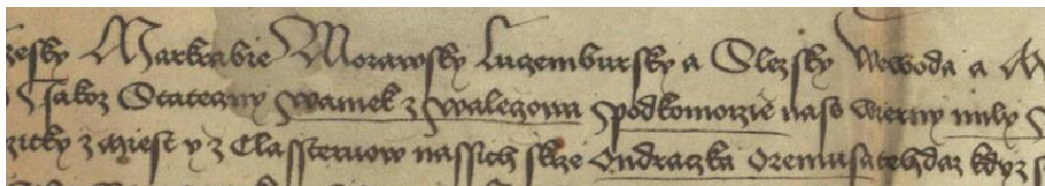 zesky Markrabie Morawsky Luczemburský a Slezsky Wewoda a
Jakoz Stateczny Waniek z Waleczowa Podkomorzie nass wierny mily
zicky z Miest y z Classteruow nassich skze Ondraczka Oremusa tehdaz kdyz